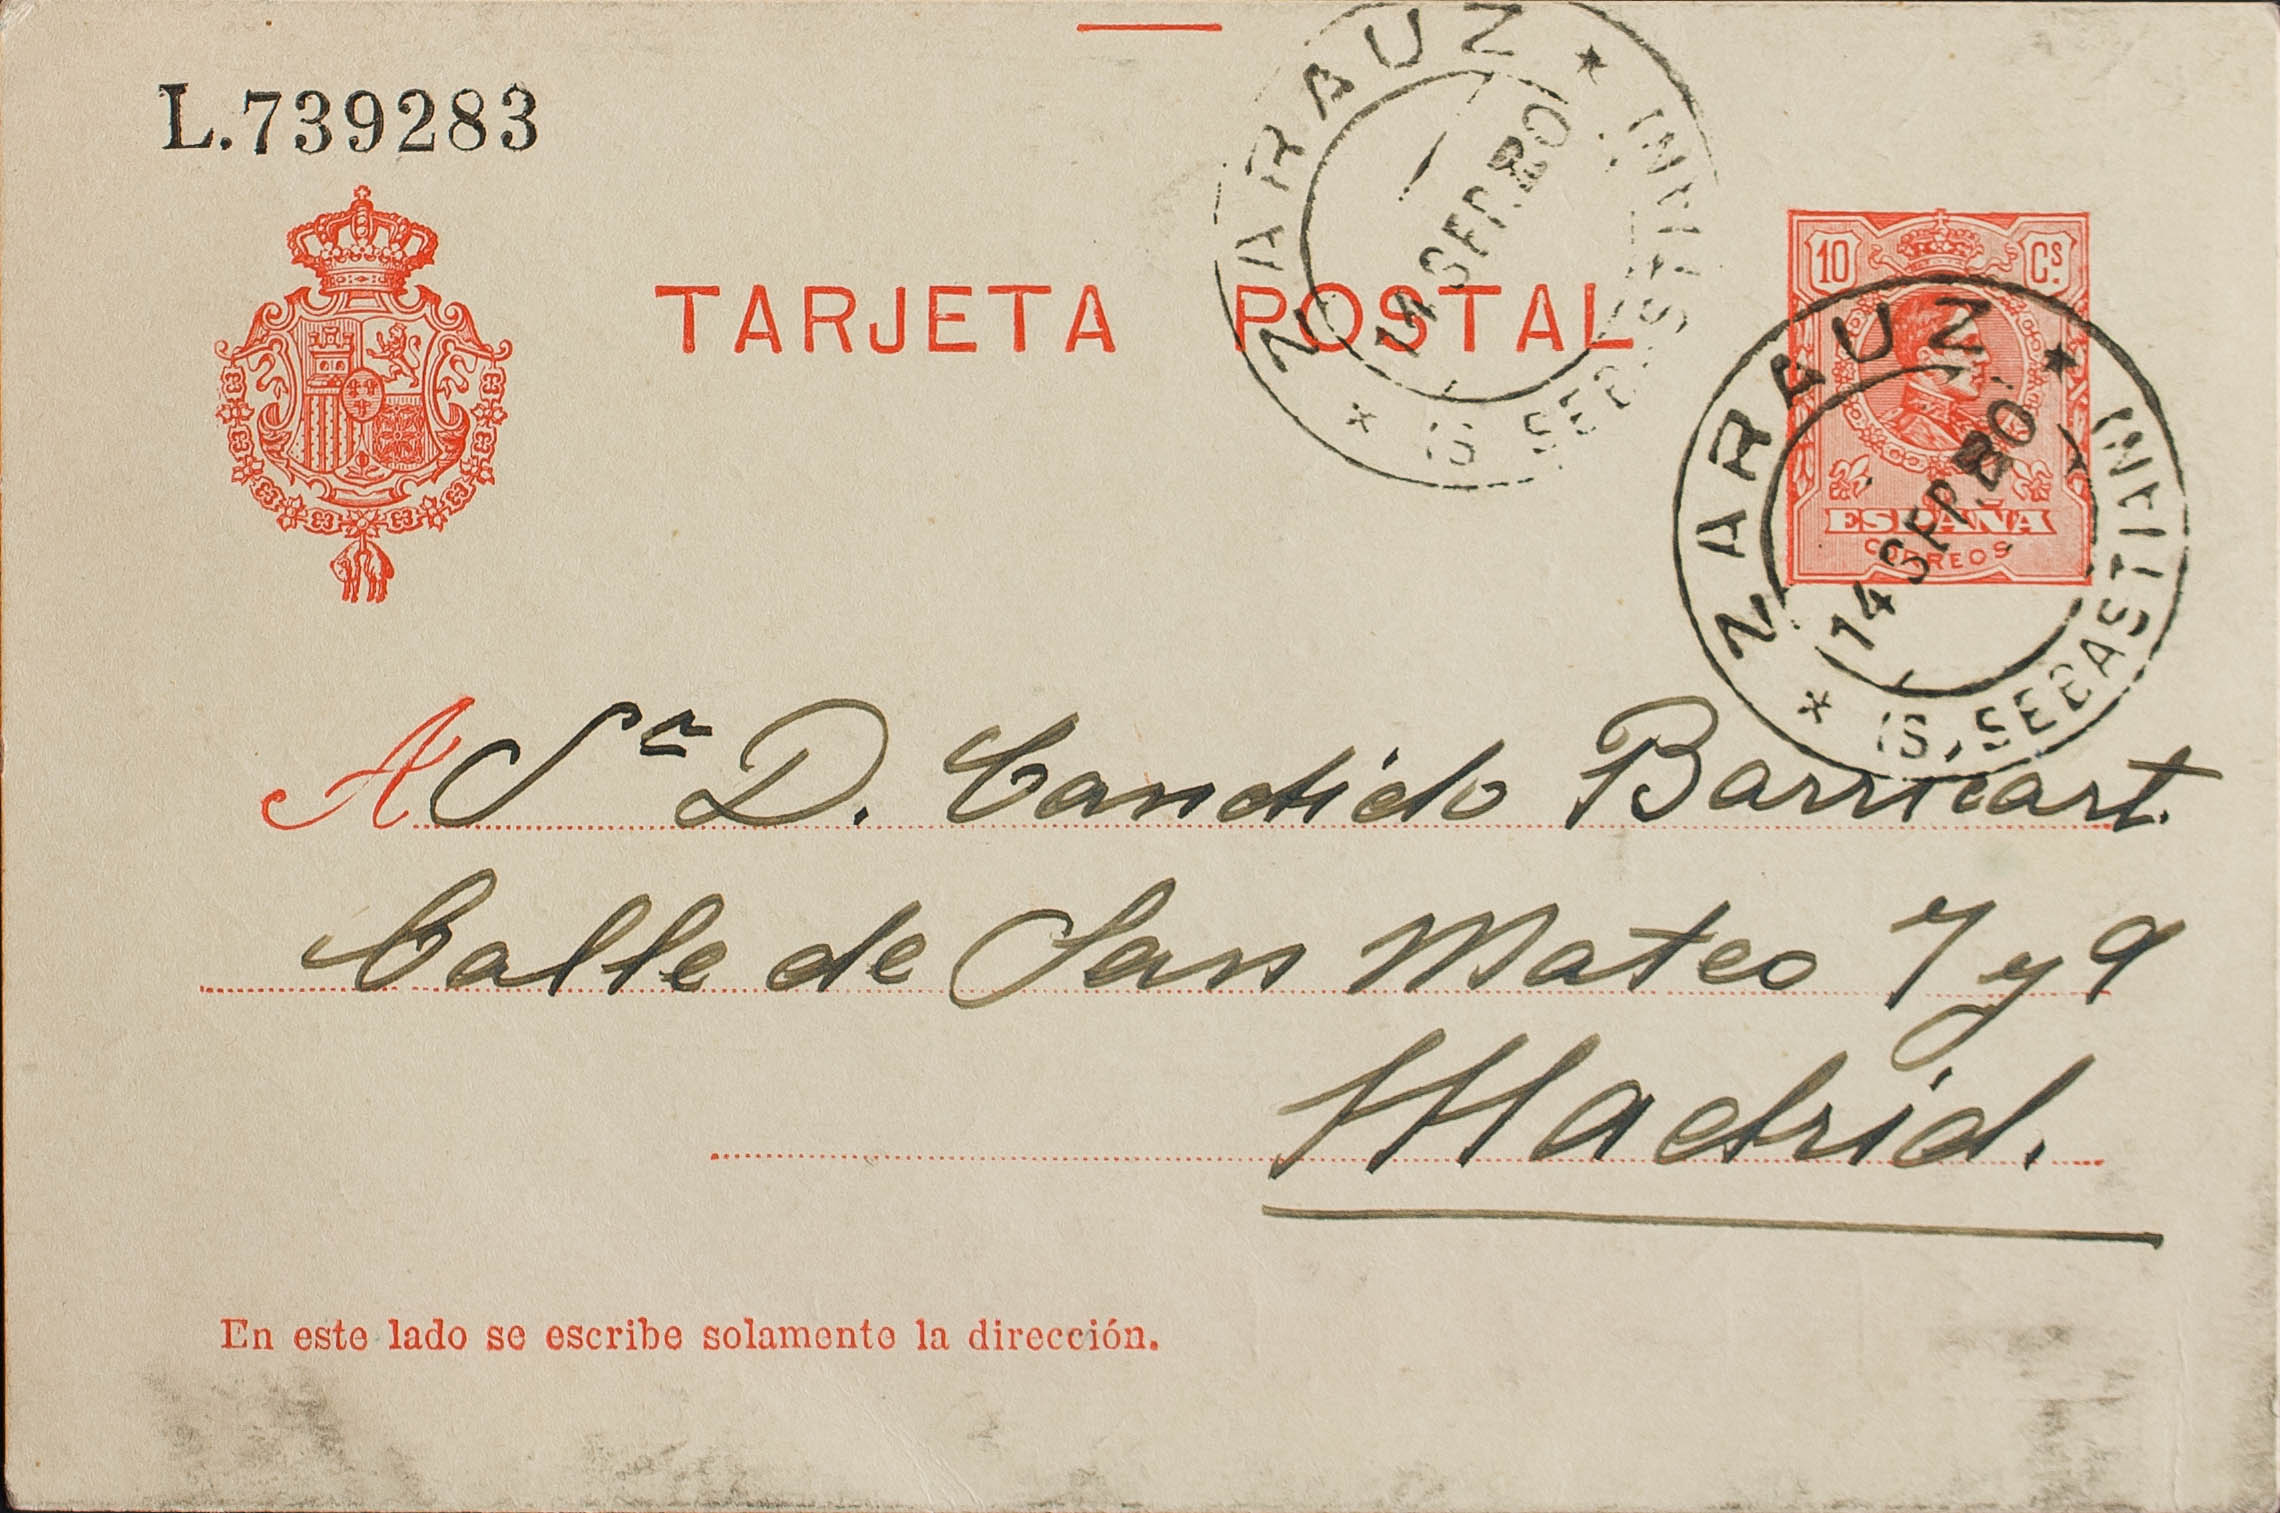 L.739283
TARJETA POSTAL
ZARAUZ
14 SEP.20
(S. SEBASTIAN)
10 Cs.
ESPAÑA
CORREOS
ZARAUZ
14 SEP.20
(S. SEBASTIAN)
A Sr D. Candido Barricart.
Calle de San Mateo 7 y 9
Madrid.
En este lado se escribe solamente la dirección.